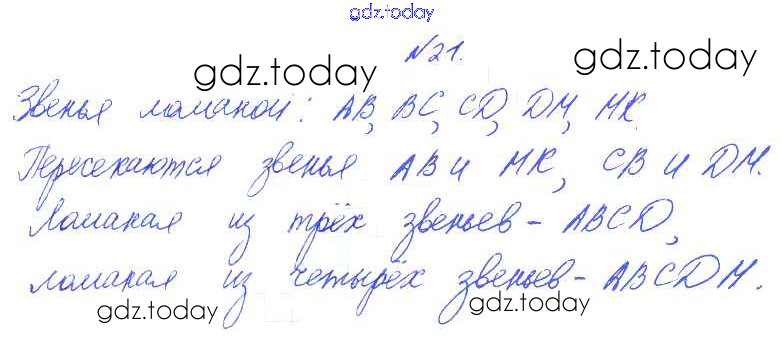 gdz.today
№21.
gdz.today gdz.today
Звенья ломаной: AB, BC, CD, DM, MK.
Пересекаются звенья AB и MK, CB и DM.
Ломаная из трёх звеньев - ABCD,
ломаная из четырёх звеньев - ABCDM.
gdz.today gdz.today